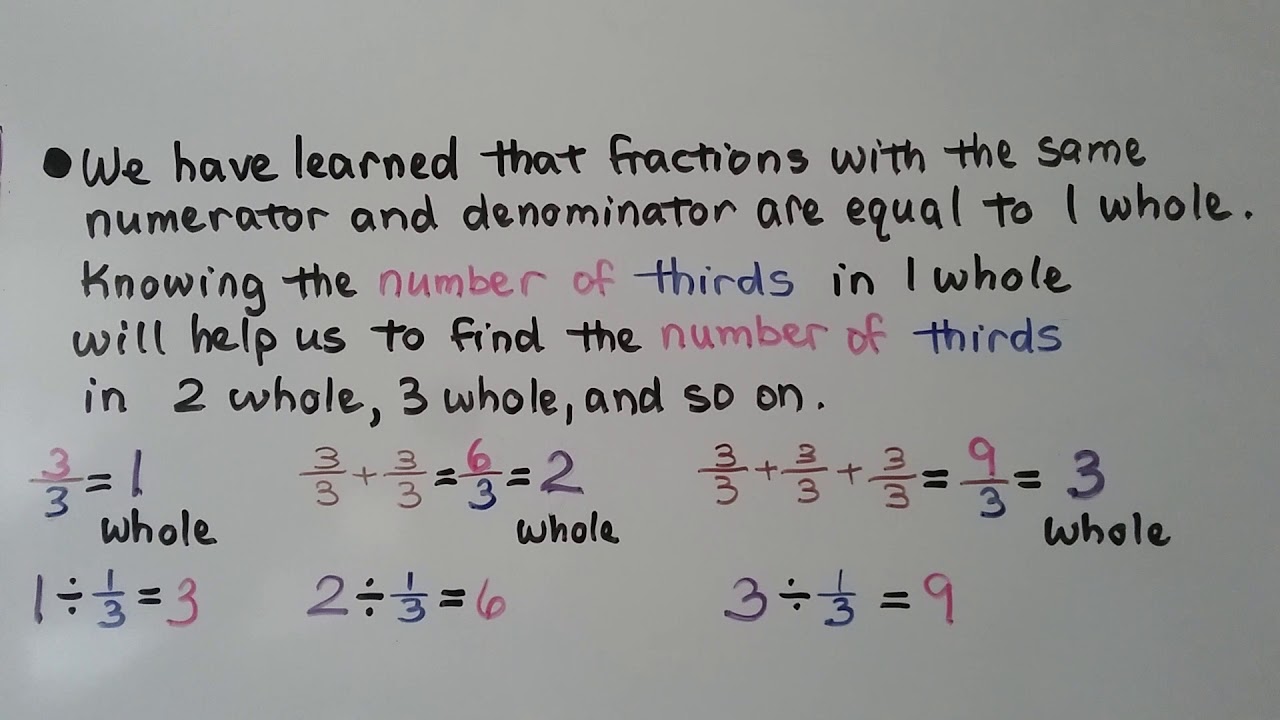 • We have learned that fractions with the same
numerator and denominator are equal to 1 whole.
Knowing the number of thirds in 1 whole
will help us to find the number of thirds
in 2 whole, 3 whole, and so on.
3/3 = 1 whole 3/3 + 3/3 = 6/3 = 2 whole 3/3 + 3/3 + 3/3 = 9/3 = 3 whole
1 ÷ 1/3 = 3 2 ÷ 1/3 = 6 3 ÷ 1/3 = 9